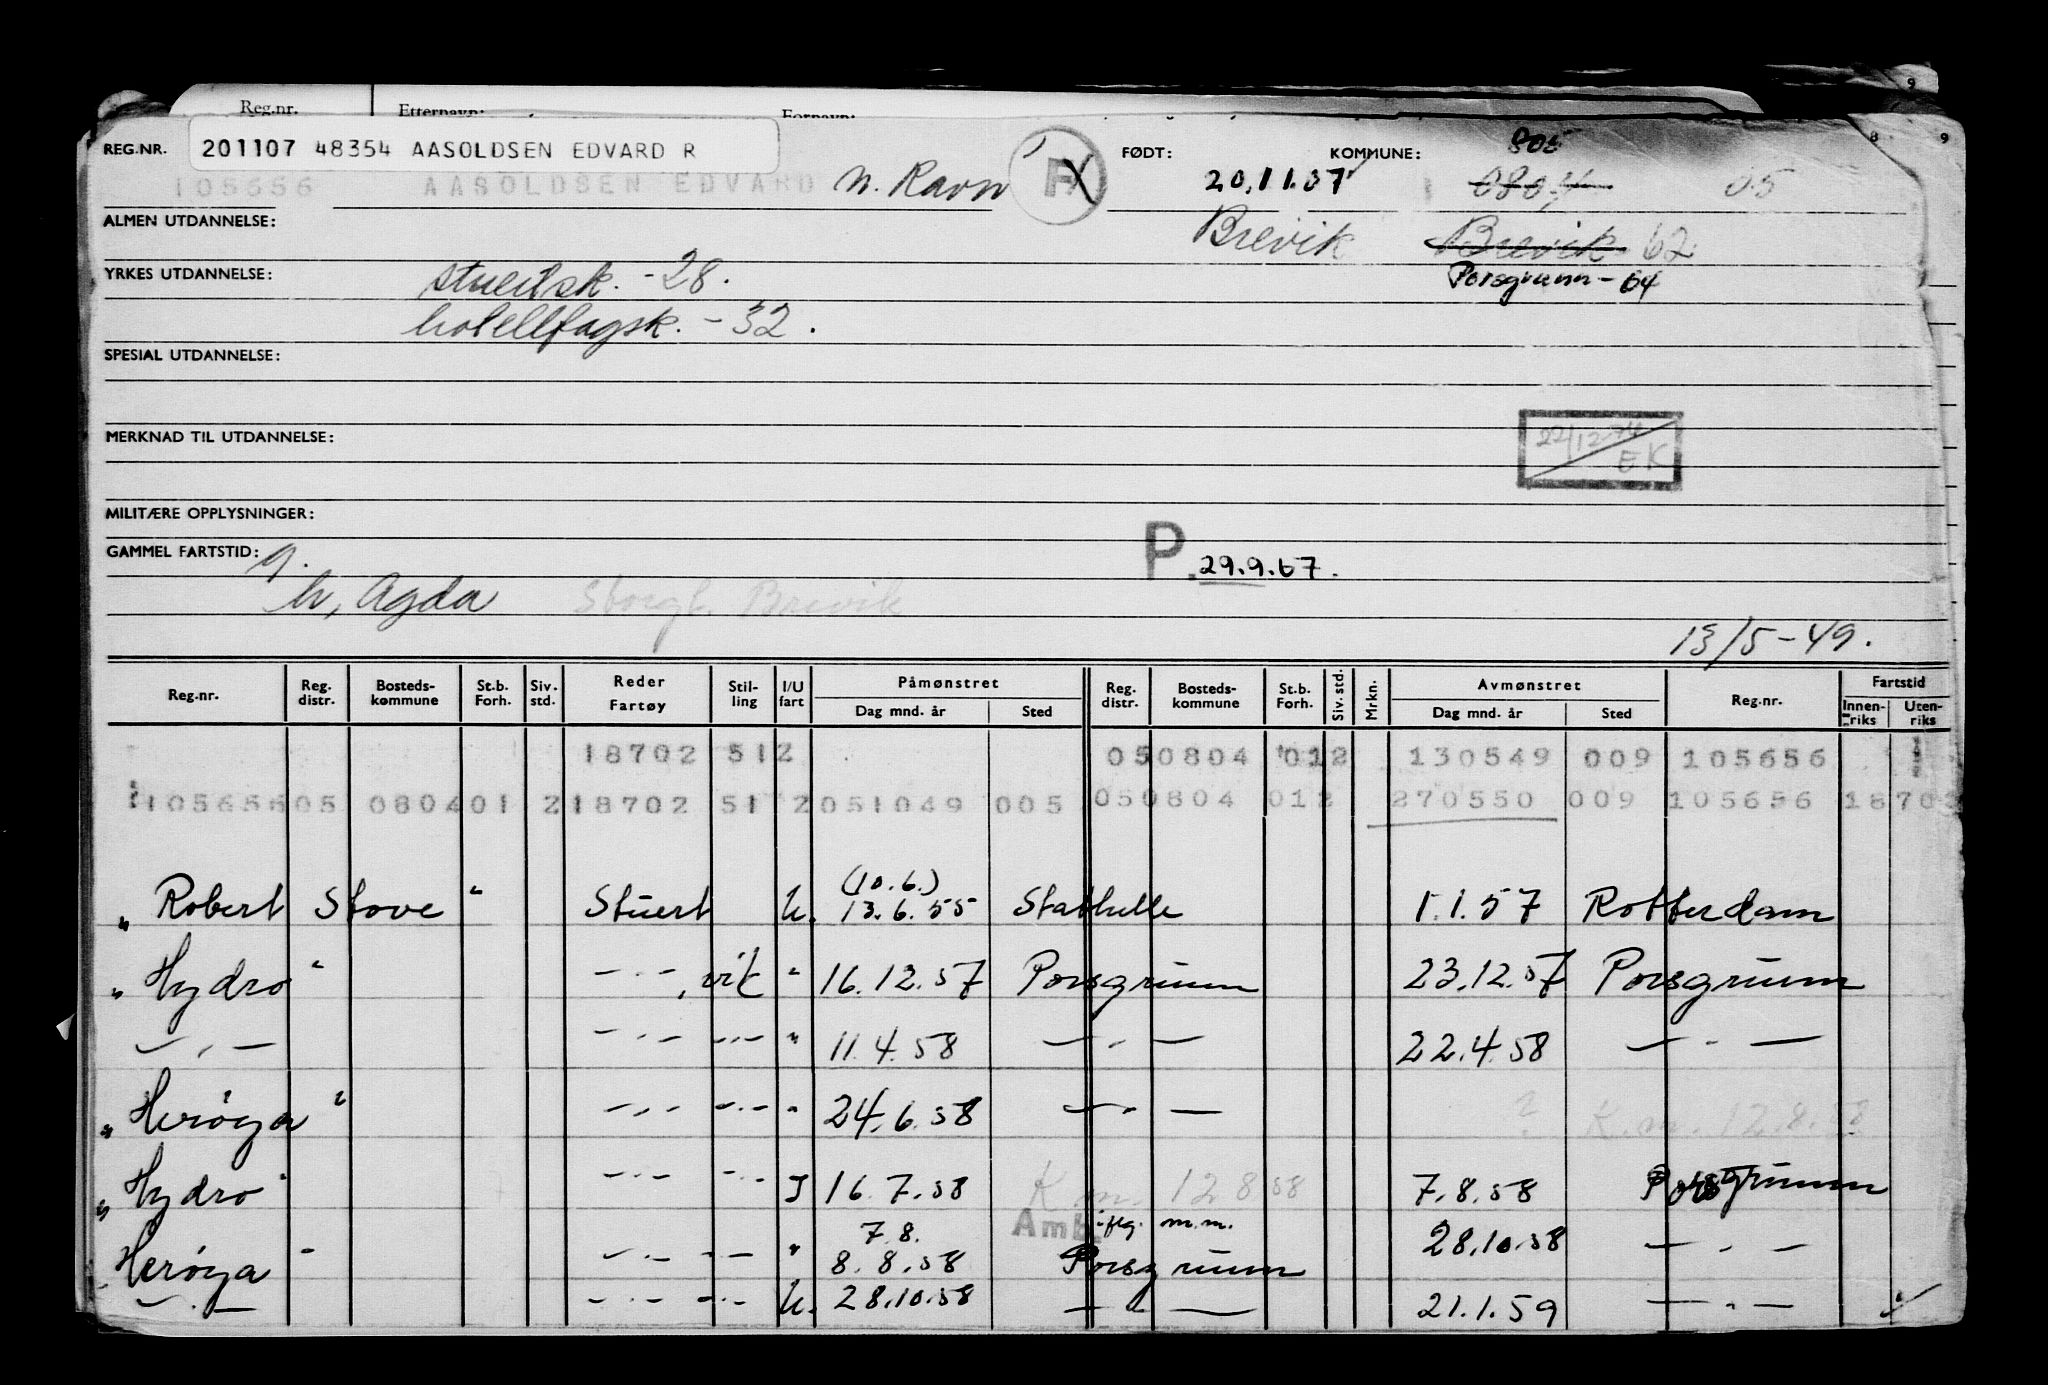 Reg.nr. Etternavn: Fornavn:
9
8 9
REG.NR. 201107 48354 AASOLDSEN EDVARD R FØDT: KOMMUNE: 805
105656 AASOLDSEN EDVARD N. Ravn R 20.11.07 0804 05
ALMEN UTDANNELSE: Brevik Brevik 62
YRKES UTDANNELSE: stuertsk. -28. Porsgrunn - 64
hotellfagsk. - 32.
SPESIAL UTDANNELSE:
MERKNAD TIL UTDANNELSE: 22/12-74 EK
MILITÆRE OPPLYSNINGER:
GAMMEL FARTSTID: g. P. 29.9.67.
h, Agda Storgt. Brevik
13/5-49.
Reg.nr. Reg. distr. Bosteds-kommune St.b. Forh. Siv. std. Reder Fartøy Stil-ling I/U fart Påmønstret Dag mnd. år Sted Reg. distr. Bosteds-kommune St.b. Forh. Siv. std. Mrkn. Avmønstret Dag mnd. år Sted Reg.nr. Fartstid Innen-riks Uten-riks
18702 512 050804 012 130549 009 105656
105656 05 0804 01 2 18702 51 2 051049 005 050804 012 270550 009 105656 18702
" Robert Stove " Stuert U. (10.6.) 13.6.55 Stathelle 1.1.57 Rotterdam
" Hydro " -"-, vik " 16.12.57 Porsgrunn 23.12.57 Porsgrunn
-"- -"- -"- " 11.4.58 -"- 22.4.58 -"-
" Herøya " -"- -"- " 24.6.58 -"- ? K.m. 12.8.58
" Hydro " -"- -"- I 16.7.58 K.m. 12.8.58 7.8.58 Porsgrunn
Amb. iflg. m.m.
" Herøya " -"- -"- " 7.8. 8.8.58 Porsgrunn 28.10.58 -"-
-"- -"- -"- U. 28.10.58 -"- 21.1.59 -"-